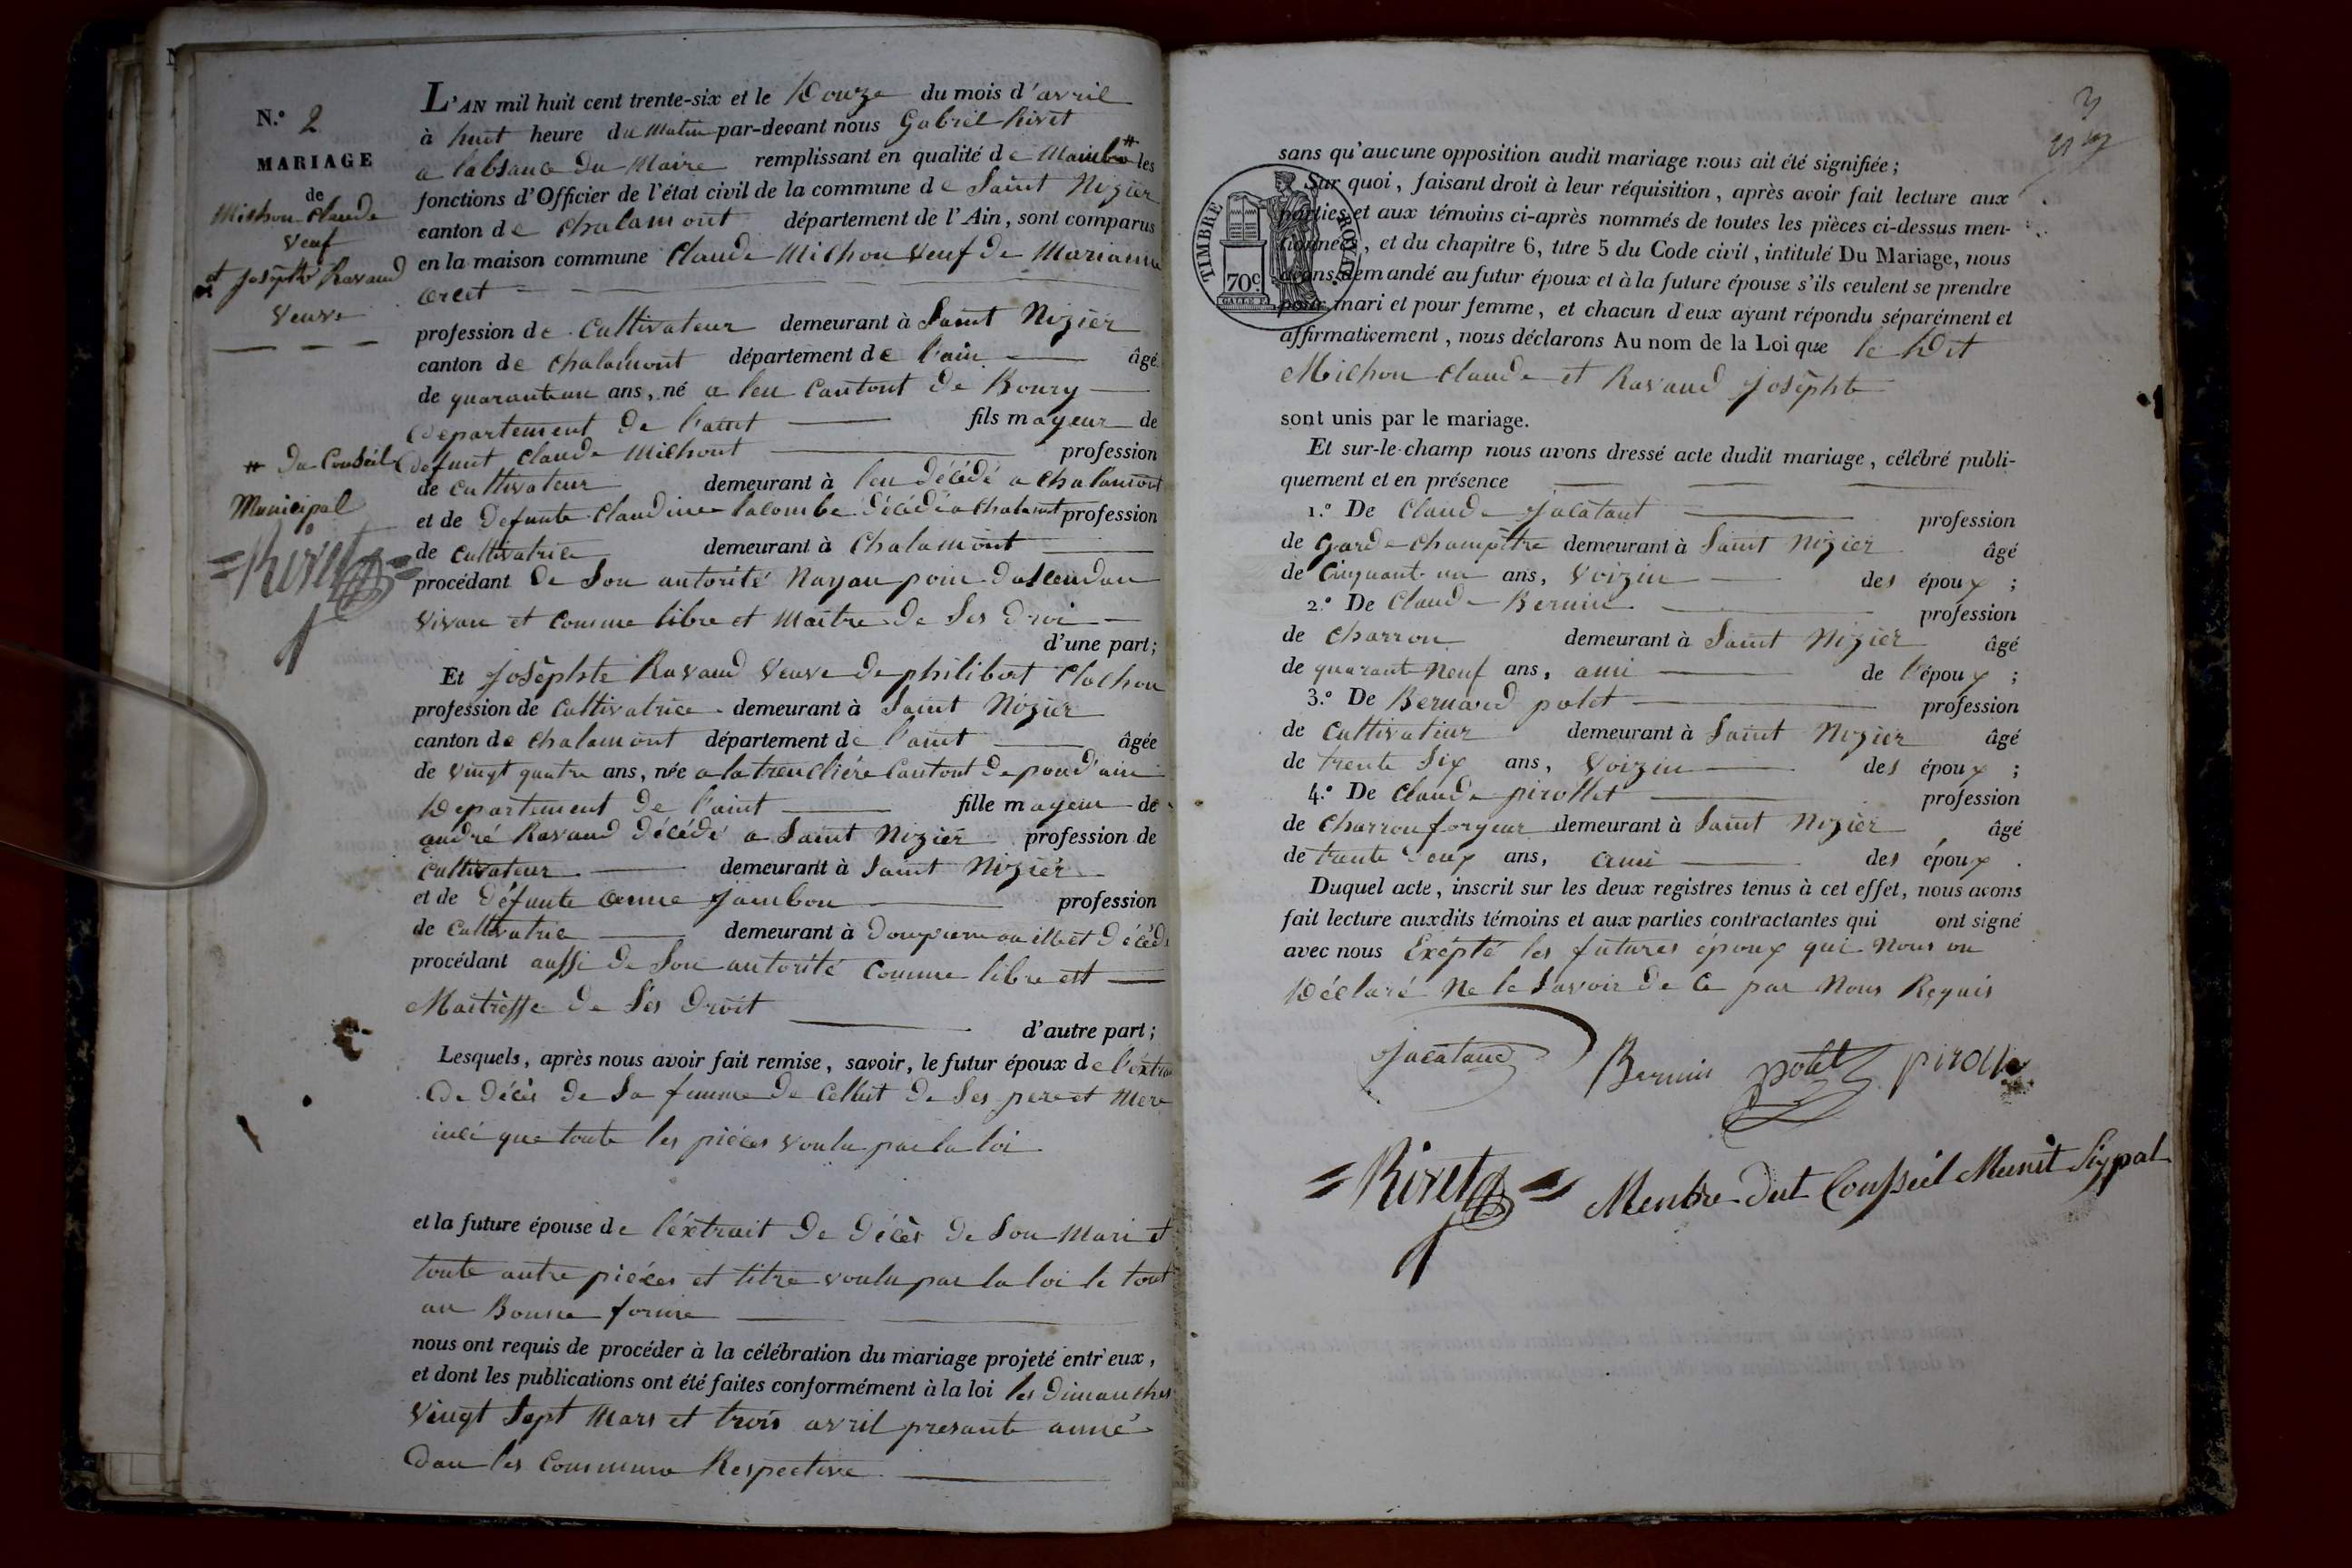 N.° 2
MARIAGE
de
Michon Claude
Veuf
et Josephte Ravaud
Veuve
# du Conseil
Municipal
=Rivet=
L'AN mil huit cent trente-six et le Douze du mois d'avril
à huit heure du matin par-devant nous Gabriel Rivet
a labsance du Maire remplissant en qualité de Maimbre # les
fonctions d'Officier de l'état civil de la commune de Saint Nizier
canton de Chalamont département de l'Ain, sont comparus
en la maison commune Claude Michon Veuf de Marianne
profession de Cultivateur demeurant à Saint Nizier
canton de Chalamont département de l'ain âgé
de quarante un ans, né a leu Cantont de Bourg
Département de l'aint fils mayeur de
Défunt Claude Michont profession
de Cultivateur demeurant à leu décédé a Chalamont
et de Défunte Claudine lacombe décédé a Chalamont profession
de Cultivatrice demeurant à Chalamont
procédant de Son autorité Nayan poin dascendan
vivan et Comme libre et Maitre de Ses droi
d'une part;
Et Josephte Ravaud Veuve de philibert Clochon
profession de Cultivatrice demeurant à Saint Nizier
canton de Chalamont département de l'aint âgée
de vingt quatre ans, née a la tranclière Cantont de pond'ain
Département de l'aint fille mayeur de
andré Ravaud décédé a Saint Nizier profession de
Cultivateur demeurant à Saint Nizier
et de défunte anne Jambon profession
de Cultivatrice demeurant à décédé
procédant aussi de Son autorité Comme libre ett
Maitresse de Ses Droit
d'autre part;
Lesquels, après nous avoir fait remise, savoir, le futur époux de l'extrai
De décès de Sa femme de Celluit de Ses pere et Mere
inci que toute les pièces voulu par la loi
et la future épouse de l'éxtrait de décès de Son Mari et
toute autre pièces et titre voulu par la loi le tout
an Bonne forme
nous ont requis de procéder à la célébration du mariage projeté entr'eux,
et dont les publications ont été faites conformément à la loi les dimanches
vingt Sept Mars et trois avril presante anné
Dan les Commune Respective
3
sans qu'aucune opposition audit mariage nous ait été signifiée;
Sur quoi, faisant droit à leur réquisition, après avoir fait lecture aux
parties et aux témoins ci-après nommés de toutes les pièces ci-dessus men-
tionnées, et du chapitre 6, titre 5 du Code civil, intitulé Du Mariage, nous
avons demandé au futur époux et à la future épouse s'ils veulent se prendre
pour mari et pour femme, et chacun d'eux ayant répondu séparément et
affirmativement, nous déclarons Au nom de la Loi que le Dit
Michon Claude et Ravaud Josephte
TIMBRE ROYAL
70c.
sont unis par le mariage.
Et sur-le-champ nous avons dressé acte dudit mariage, célébré publi-
quement et en présence
1.° De Claude Jacatant profession
de garde champêtre demeurant à Saint Nizier âgé
de Cinquant un ans, Voizin des époux ;
2.° De Claude Bernin profession
de Charron demeurant à Saint Nizier âgé
de quarant Neuf ans, ami de l'époux ;
3.° De Bernard polet profession
de Cultivateur demeurant à Saint Nizier âgé
de trente Six ans, Voizin des époux ;
4.° De Claude pirollet profession
de Charron forgeur demeurant à Saint Nizier âgé
de trente deux ans, ami des époux .
Duquel acte, inscrit sur les deux registres tenus à cet effet, nous avons
fait lecture auxdits témoins et aux parties contractantes qui ont signé
avec nous Exépté les futures époux qui Nous on
Déclaré Ne le Savoir de Ce par Nous Requis
Jacataud Bernin polet
=Rivet= Menbre dut Consseil Munit Sippal